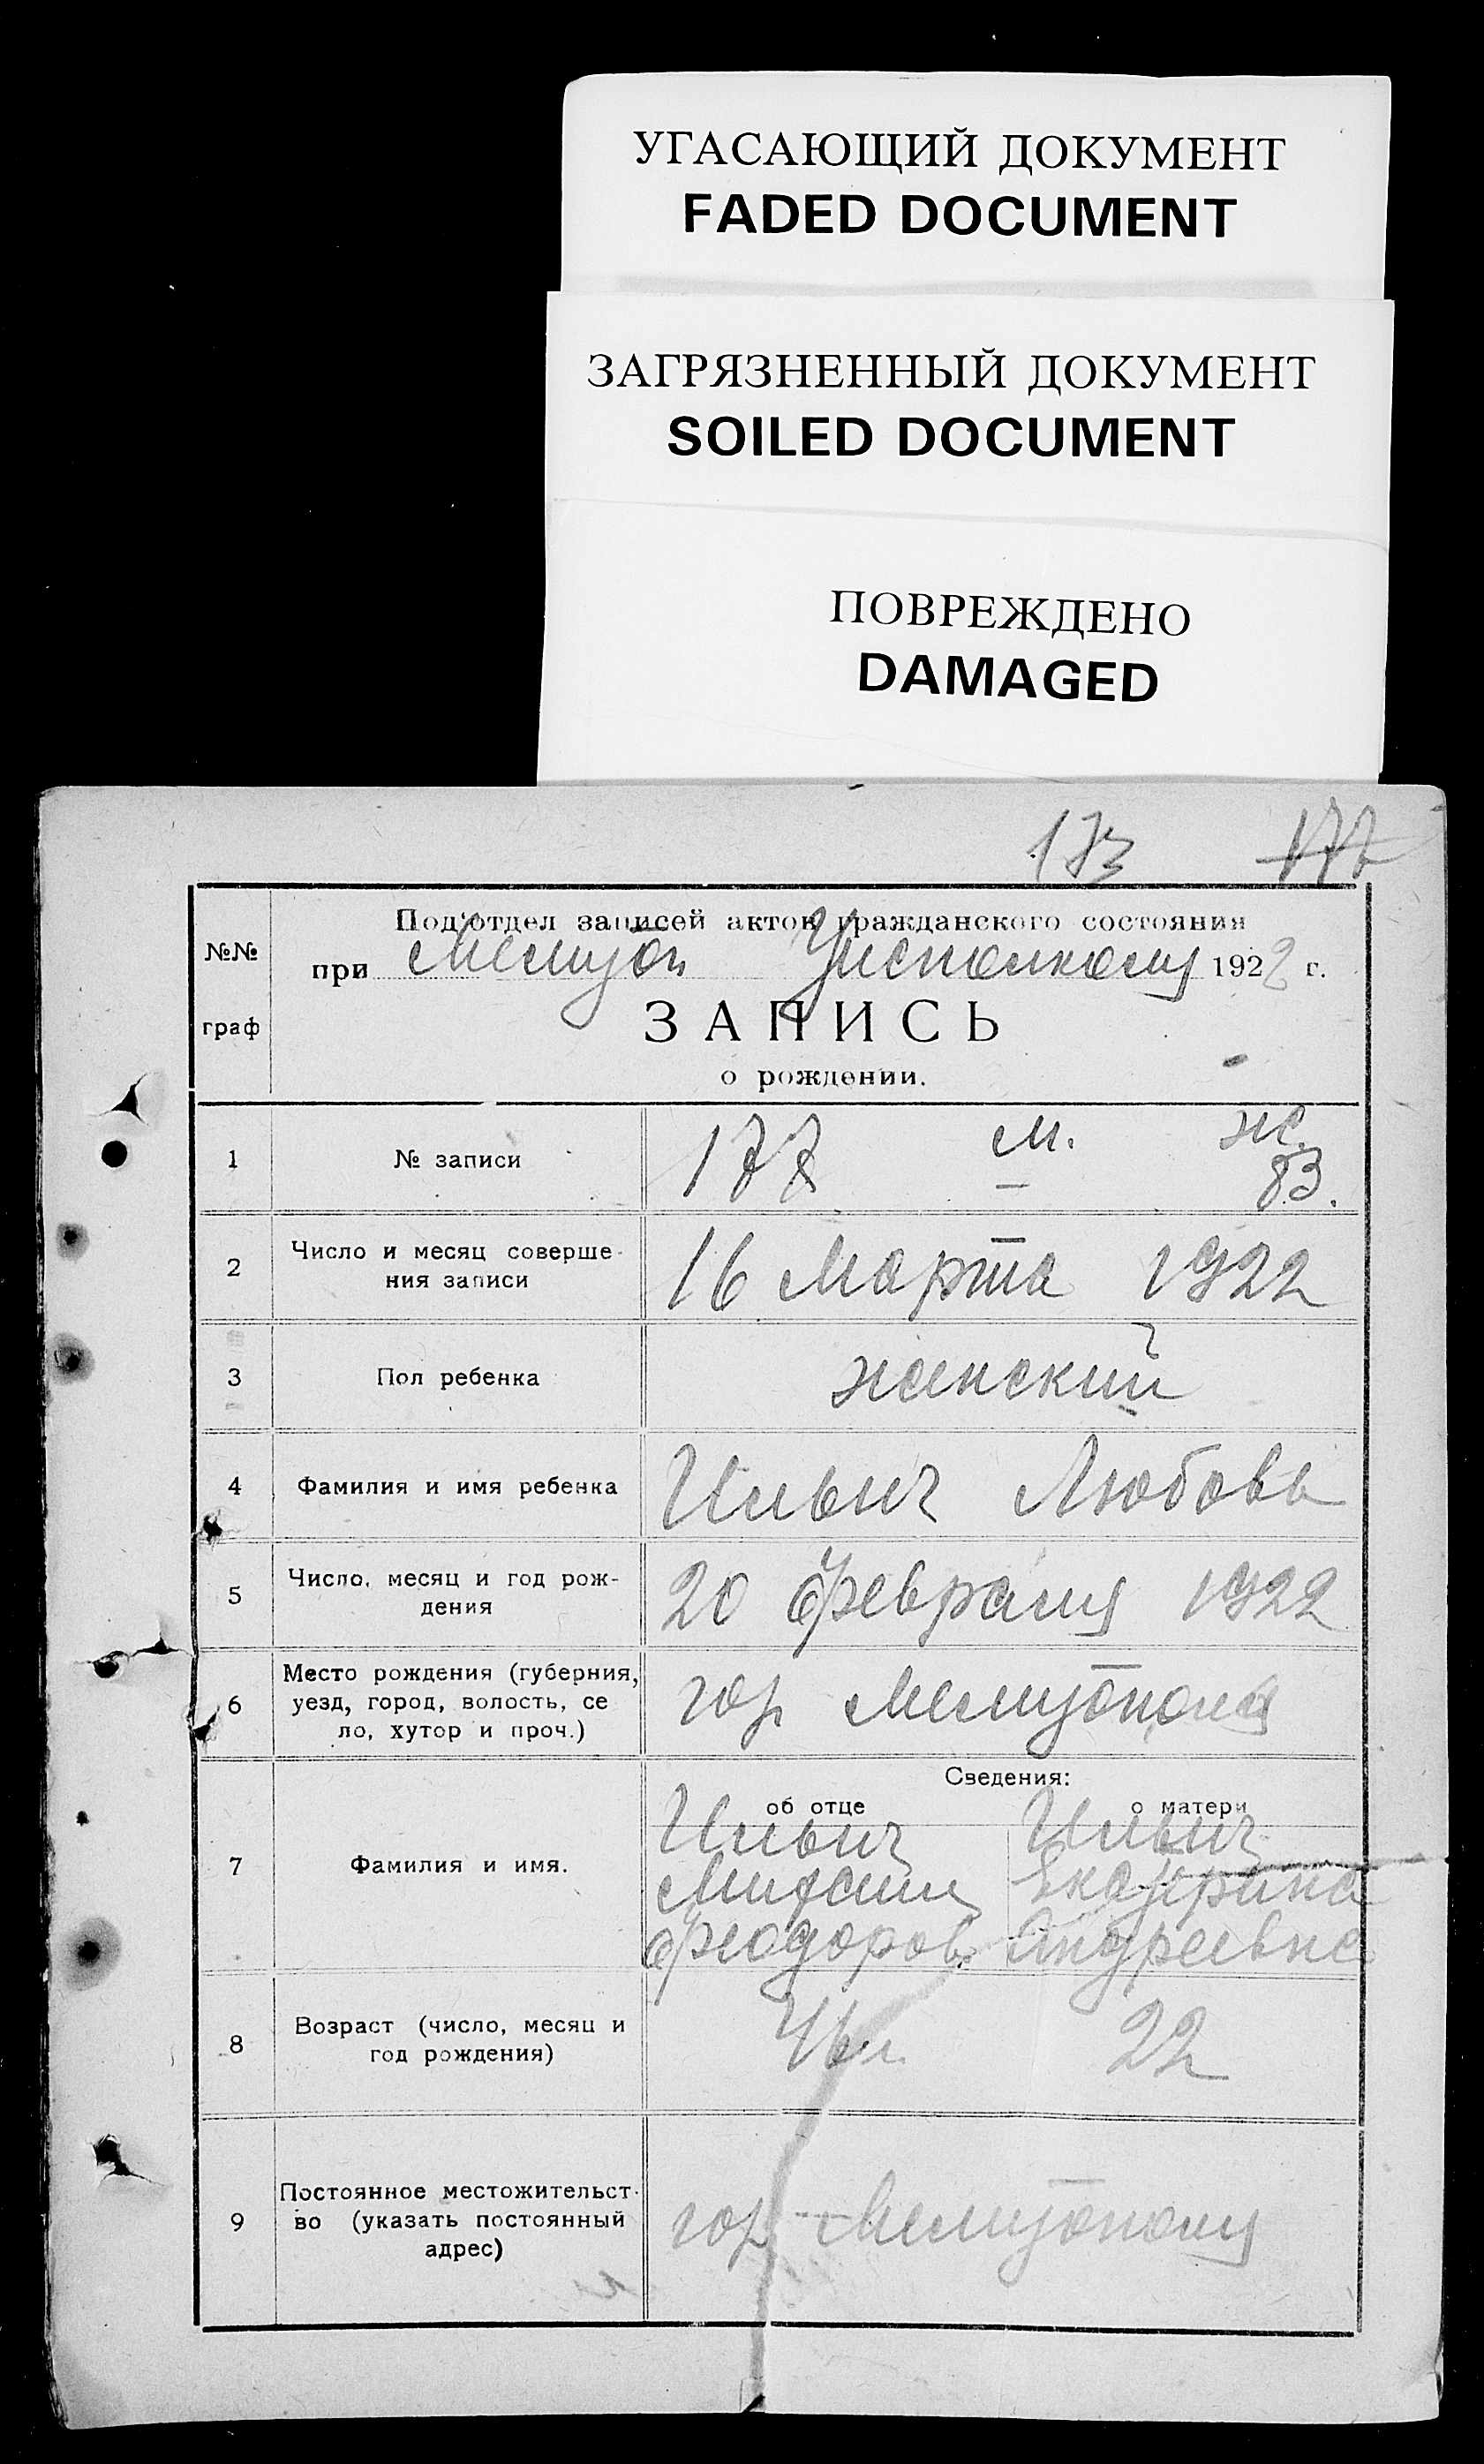 УГАСАЮЩИЙ ДОКУМЕНТ
FADED DOCUMENT
ЗАГРЯЗНЕННЫЙ ДОКУМЕНТ
SOILED DOCUMENT
ПОВРЕЖДЕНО
DAMAGED
173 177
№№ граф
Под'отдел записей актов гражданского состояния
при Мелитоп Исполкому 1922 г.
ЗАПИСЬ
о рождении.
1 № записи 177 м. — ж. 83.
2 Число и месяц соверше-
ния записи 16 Марта 1922
3 Пол ребенка женский
4 Фамилия и имя ребенка Ильич Любовь
5 Число, месяц и год рож-
дения 20 февраля 1922
6 Место рождения (губерния,
уезд, город, волость, се
ло, хутор и проч.) гор Мелитополь
Сведения:
об отце о матери
7 Фамилия и имя. Ильич Ильич
Михаил Екатрина
Феодоров. Андреевна
8 Возраст (число, месяц и
год рождения) 46 л. 22
9 Постоянное местожительст-
во (указать постоянный
адрес) гор Мелитополь